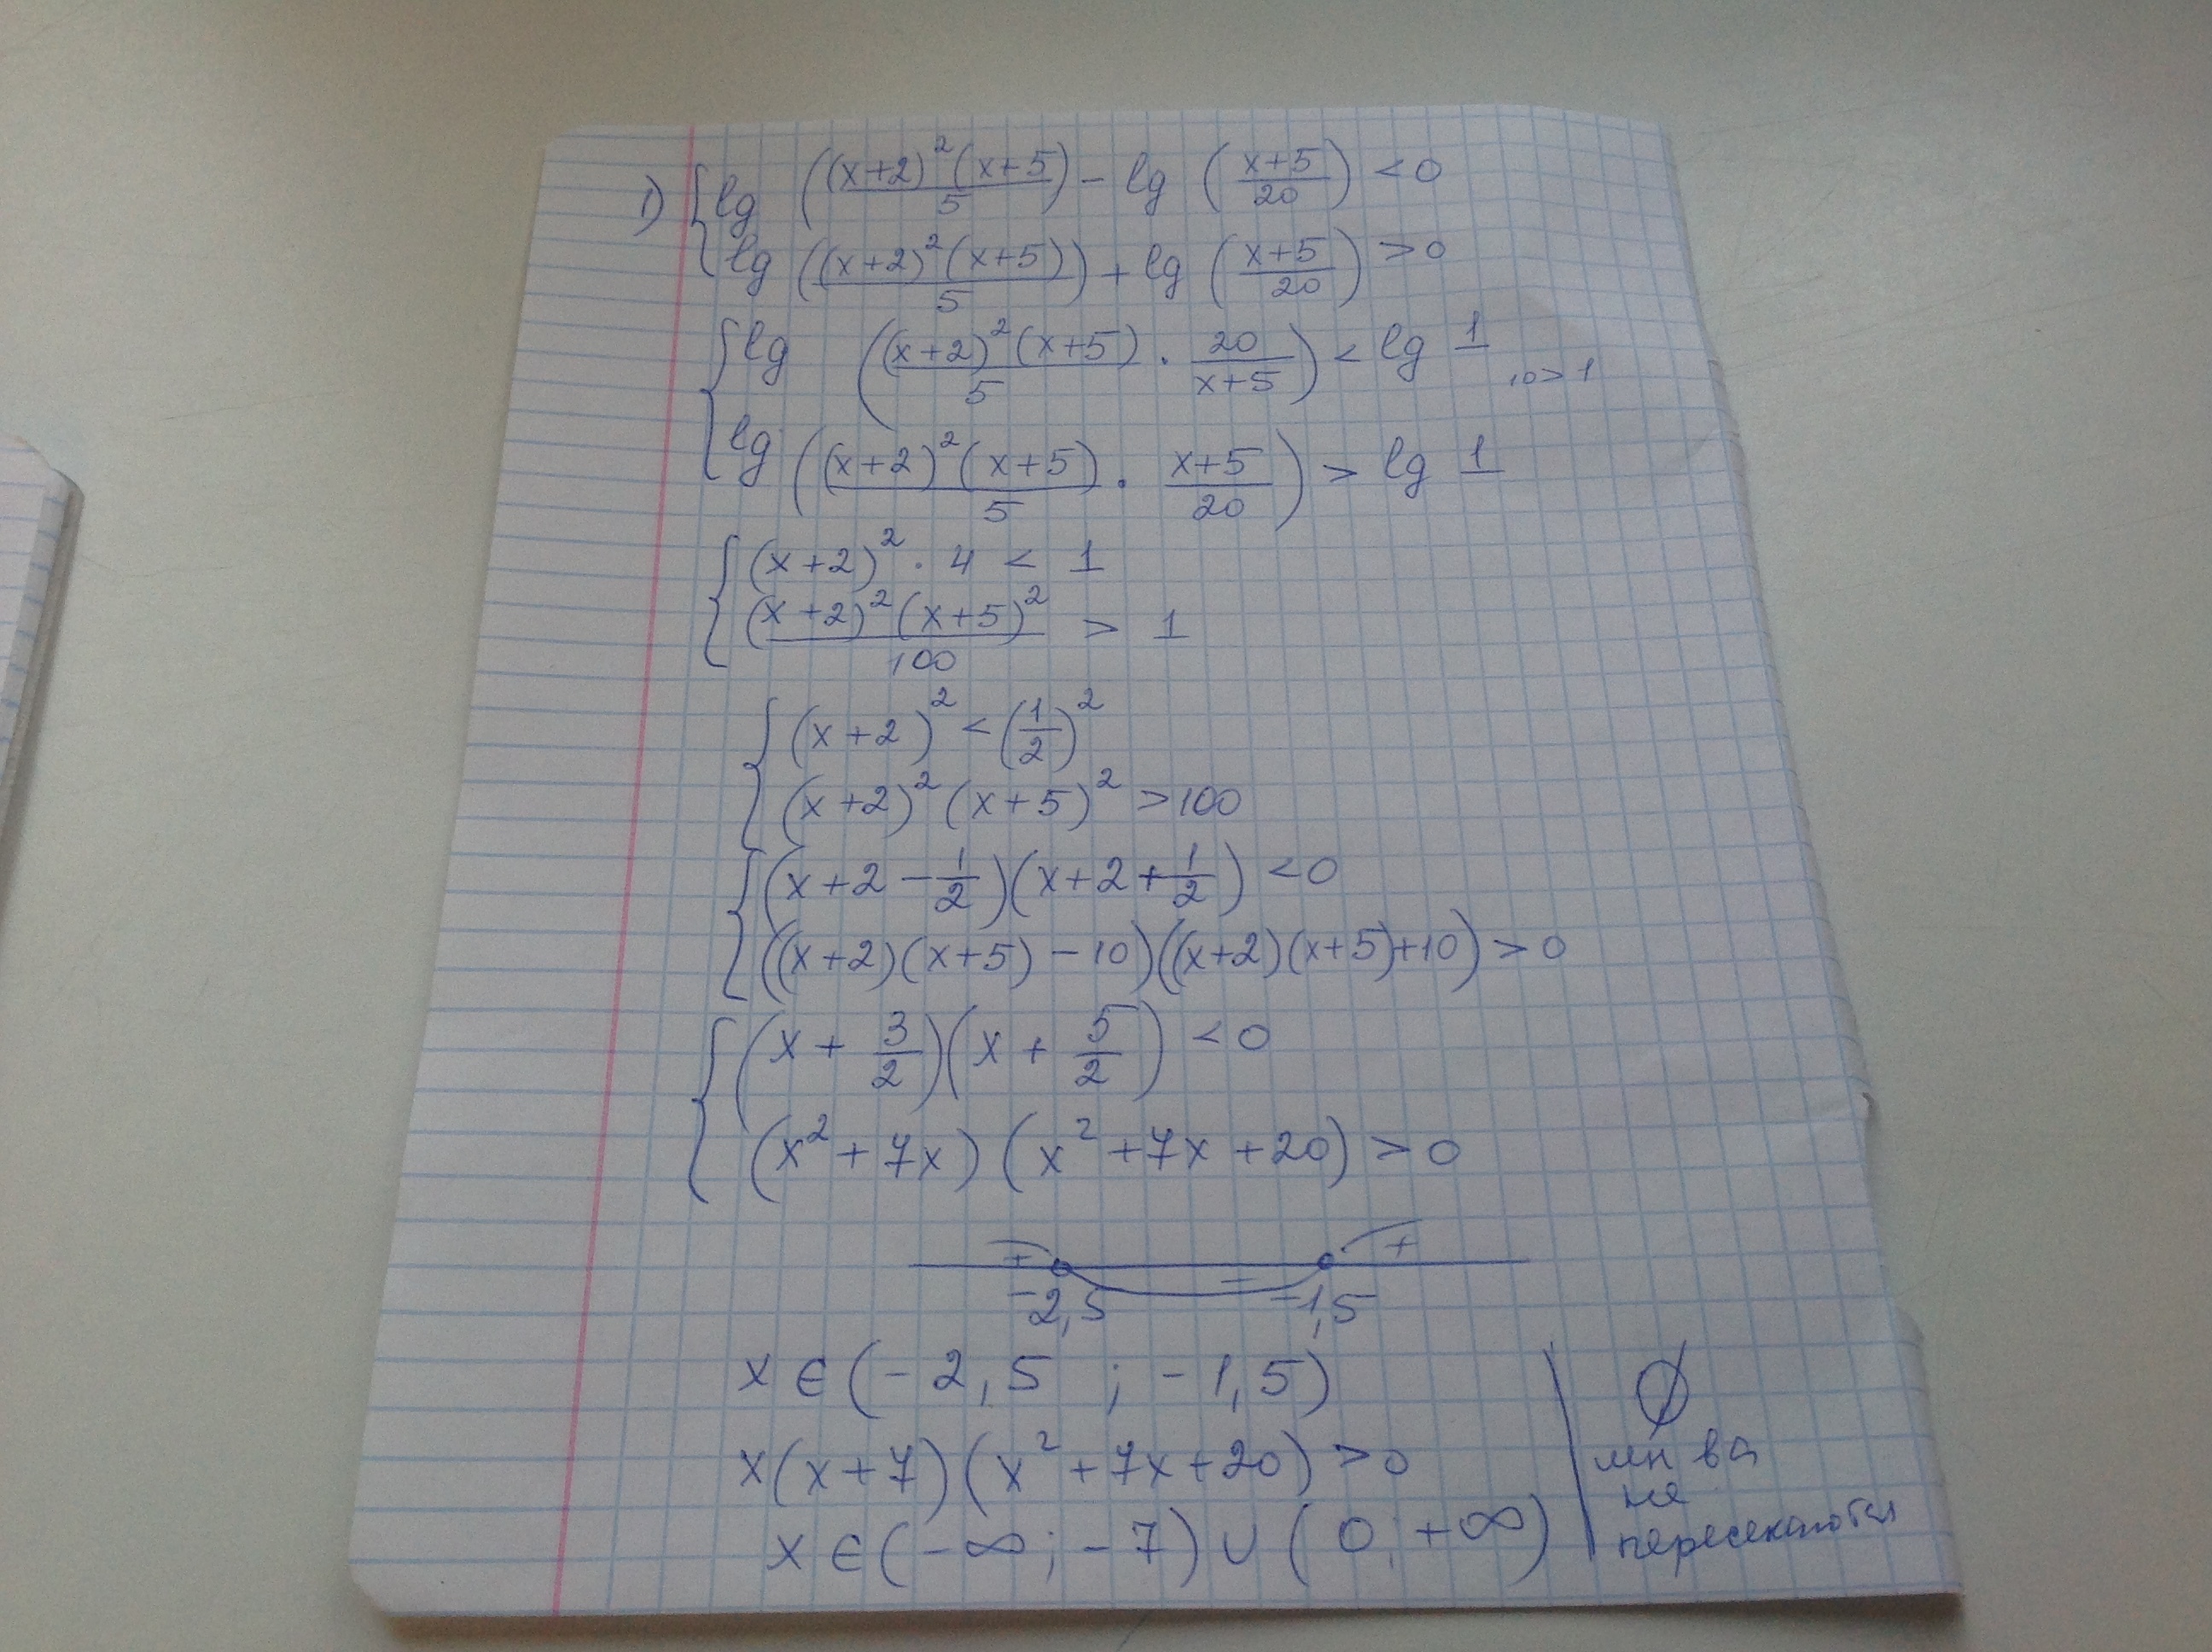 1) { lg ((x+2)²(x+5)/5) - lg ((x+5)/20) < 0
lg ((x+2)²(x+5))/5) + lg ((x+5)/20) > 0
{ lg ((x+2)²(x+5)/5 · 20/(x+5)) < lg 1
10>1
lg ((x+2)²(x+5)/5 · (x+5)/20) > lg 1
{ (x+2)² · 4 < 1
(x+2)²(x+5)²/100 > 1
{ (x+2)² < (1/2)²
(x+2)²(x+5)² > 100
{ (x+2-1/2)(x+2+1/2) < 0
((x+2)(x+5)-10)((x+2)(x+5)+10) > 0
{ (x+3/2)(x+5/2) < 0
(x²+7x)(x²+7x+20) > 0
+ - +
-2,5 -1,5
x ∈ (-2,5 ; -1,5)
x(x+7)(x²+7x+20) > 0
x ∈ (-∞; -7) ∪ (0; +∞)
∅
мн ва
не
пересекаются